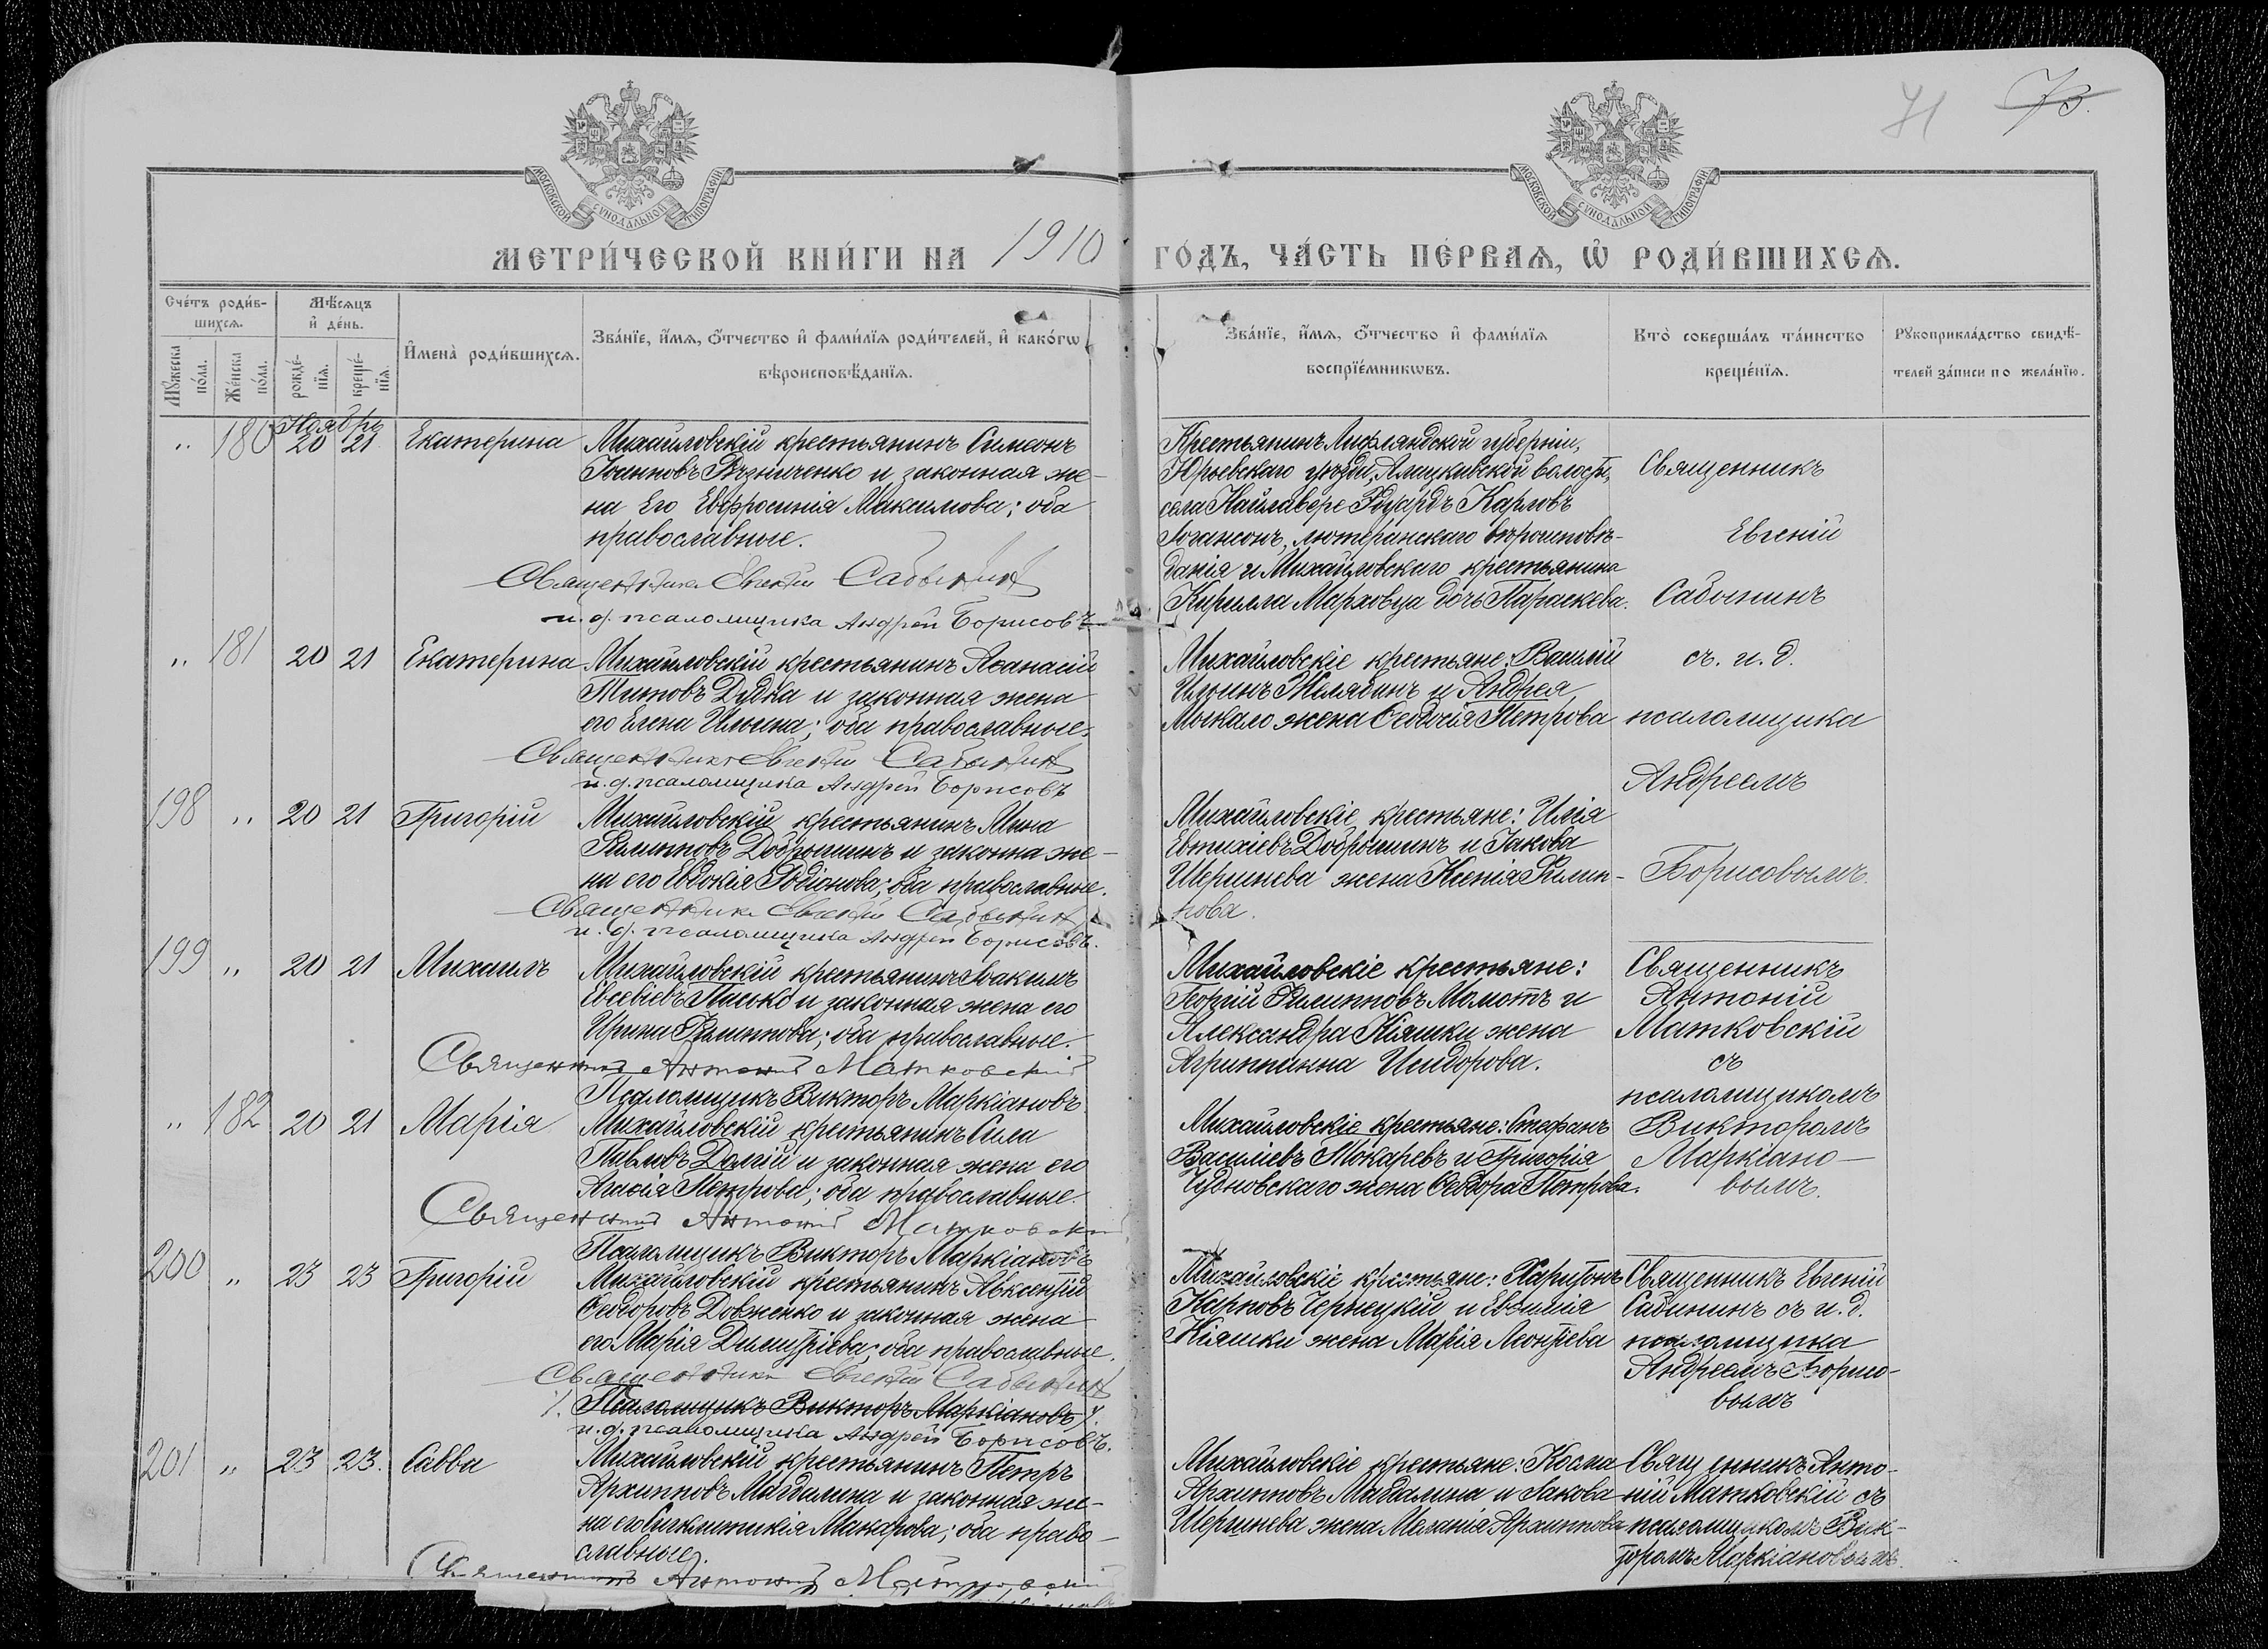 71 73.
МОСКОВСКОЙ СѴНОДАЛЬНОЙ ТИПОГРАФІИ
МОСКОВСКОЙ СѴНОДАЛЬНОЙ ТИПОГРАФІИ
МЕТРИ́ЧЕСКОЙ КНИ́ГИ НА 1910 ГО́ДЪ, ЧА́СТЬ ПЕ́РВАѦ, Ѡ҆ РОДИ́ВШИХСѦ.
Сче́тъ роди́в-
шихсѧ.
Мѣ́сѧцъ
и҆ де́нь.
Мꙋ́жеска по́ла.
Же́нска по́ла.
рожде́-
нїѧ.
креще́-
нїѧ.
И҆мена̀ роди́вшихсѧ.
Зва́нїе, и҆́мѧ, ѻ҆́тчество и҆ фами́лїѧ роди́телей, и҆ како́гѡ
вѣроисповѣ́данїѧ.
Зва́нїе, и҆́мѧ, ѻ҆́тчество и҆ фами́лїѧ
воспрїе́мникѡвъ.
Кто̀ соверша́лъ та́инство
креще́нїѧ.
Рꙋкоприкла́дство свидѣ́-
телей за́писи по жела́нїю.
Ноябрь
„ 180 20 21 Екатерина
Михайловскій крестьянинъ Симеонъ
законная же-
на его Евфросинія Максимова; оба
православные.
Священникъ Евгеній Сабынин
и. д. псаломщика Андрей Борисовъ
Крестьянинъ Лифляндской губерніи,
Юрьевскаго уѣзда, волости,
села Кайлавере Эдуардъ Карловъ
Іогансонъ, лютеранскаго вѣроисповѣ-
данія и Михайловскаго крестьянина
Кирилла Марховца дочь Параскева.
Священникъ
Евгеній
Сабынинъ
съ и. д.
псаломщика
Андреемъ
Борисовымъ.
„ 181 20 21 Екатерина
Михайловскій крестьянинъ Аѳанасій
Титовъ Дудка и законная жена
его Елена Ильина; оба православные.
Священникъ Евгеній Сабынин
и. д. псаломщика Андрей Борисовъ
Михайловскіе крестьяне: Василій
Ильинъ Желябинъ и Андрея
Мыкало жена Ѳеодосія Петрова
198 „ 20 21 Григорій
Михайловскій крестьянинъ Мина
Филипповъ Добрышинъ и законна же-
на его Евдокія Родіонова; оба православные.
Священникъ Евгеній Сабынин
и. д. псаломщика Андрей Борисовъ.
Михайловскіе крестьяне: Илія
Евтихіевъ Добрышинъ и Іакова
Шершнева жена Ксенія Филип-
пова.
199 „ 20 21 Михаилъ
Михайловскій крестьянинъ Іоакимъ
Евсевіевъ и законная жена его
Ирина Филиппова; оба православные.
Священникъ Антоній Матковскій
Псаломщикъ Викторъ Маркіановъ
Михайловскіе крестьяне:
Георгій Филипповъ Молотъ и
Александра Кіяшки жена
Агриппина Исидорова.
Священникъ
Антоній
Матковскій
съ
псаломщикомъ
Викторомъ
Маркіано-
вымъ.
„ 182 20 21 Марія
Михайловскій крестьянинъ Сила
Павловъ Долгій и законная жена его
Агафія Петрова; оба православные.
Священникъ Антоній Матковскій
Псаломщикъ Викторъ Маркіановъ
Михайловскіе крестьяне: Стефанъ
Василіевъ Токаревъ и Григорія
Чудновскаго жена Ѳеодора Петрова.
200 „ 23 23 Григорій
Михайловскій крестьянинъ Авксентій
Ѳеодоровъ Довженко и законная жена
его Марія Димитріева; оба православные.
Священникъ Евгеній Сабынин
Псаломщикъ Викторъ Маркіановъ
и. д. псаломщика Андрей Борисовъ.
Михайловскіе крестьяне: Харитонъ
Карповъ Чернецкій и Евѳимія
Кіяшки жена Марія Леонтіева
Священникъ Евгеній
Сабынинъ съ и. д.
псаломщика
Андреемъ Борисо-
вымъ
201 „ 23 23. Савва
Михайловскій крестьянинъ Петръ
Архипповъ Магдалина и законная же-
на его Синклитикія Макарова; оба право-
славные.
Священникъ Антоній Матковскій
Михайловскіе крестьяне: Косма
Архипповъ Магдалина и Іакова
Шершнева жена Меланія Архиппова
Священникъ Анто-
ній Матковскій съ
псаломщикомъ Вик-
торомъ Маркіановымъ.